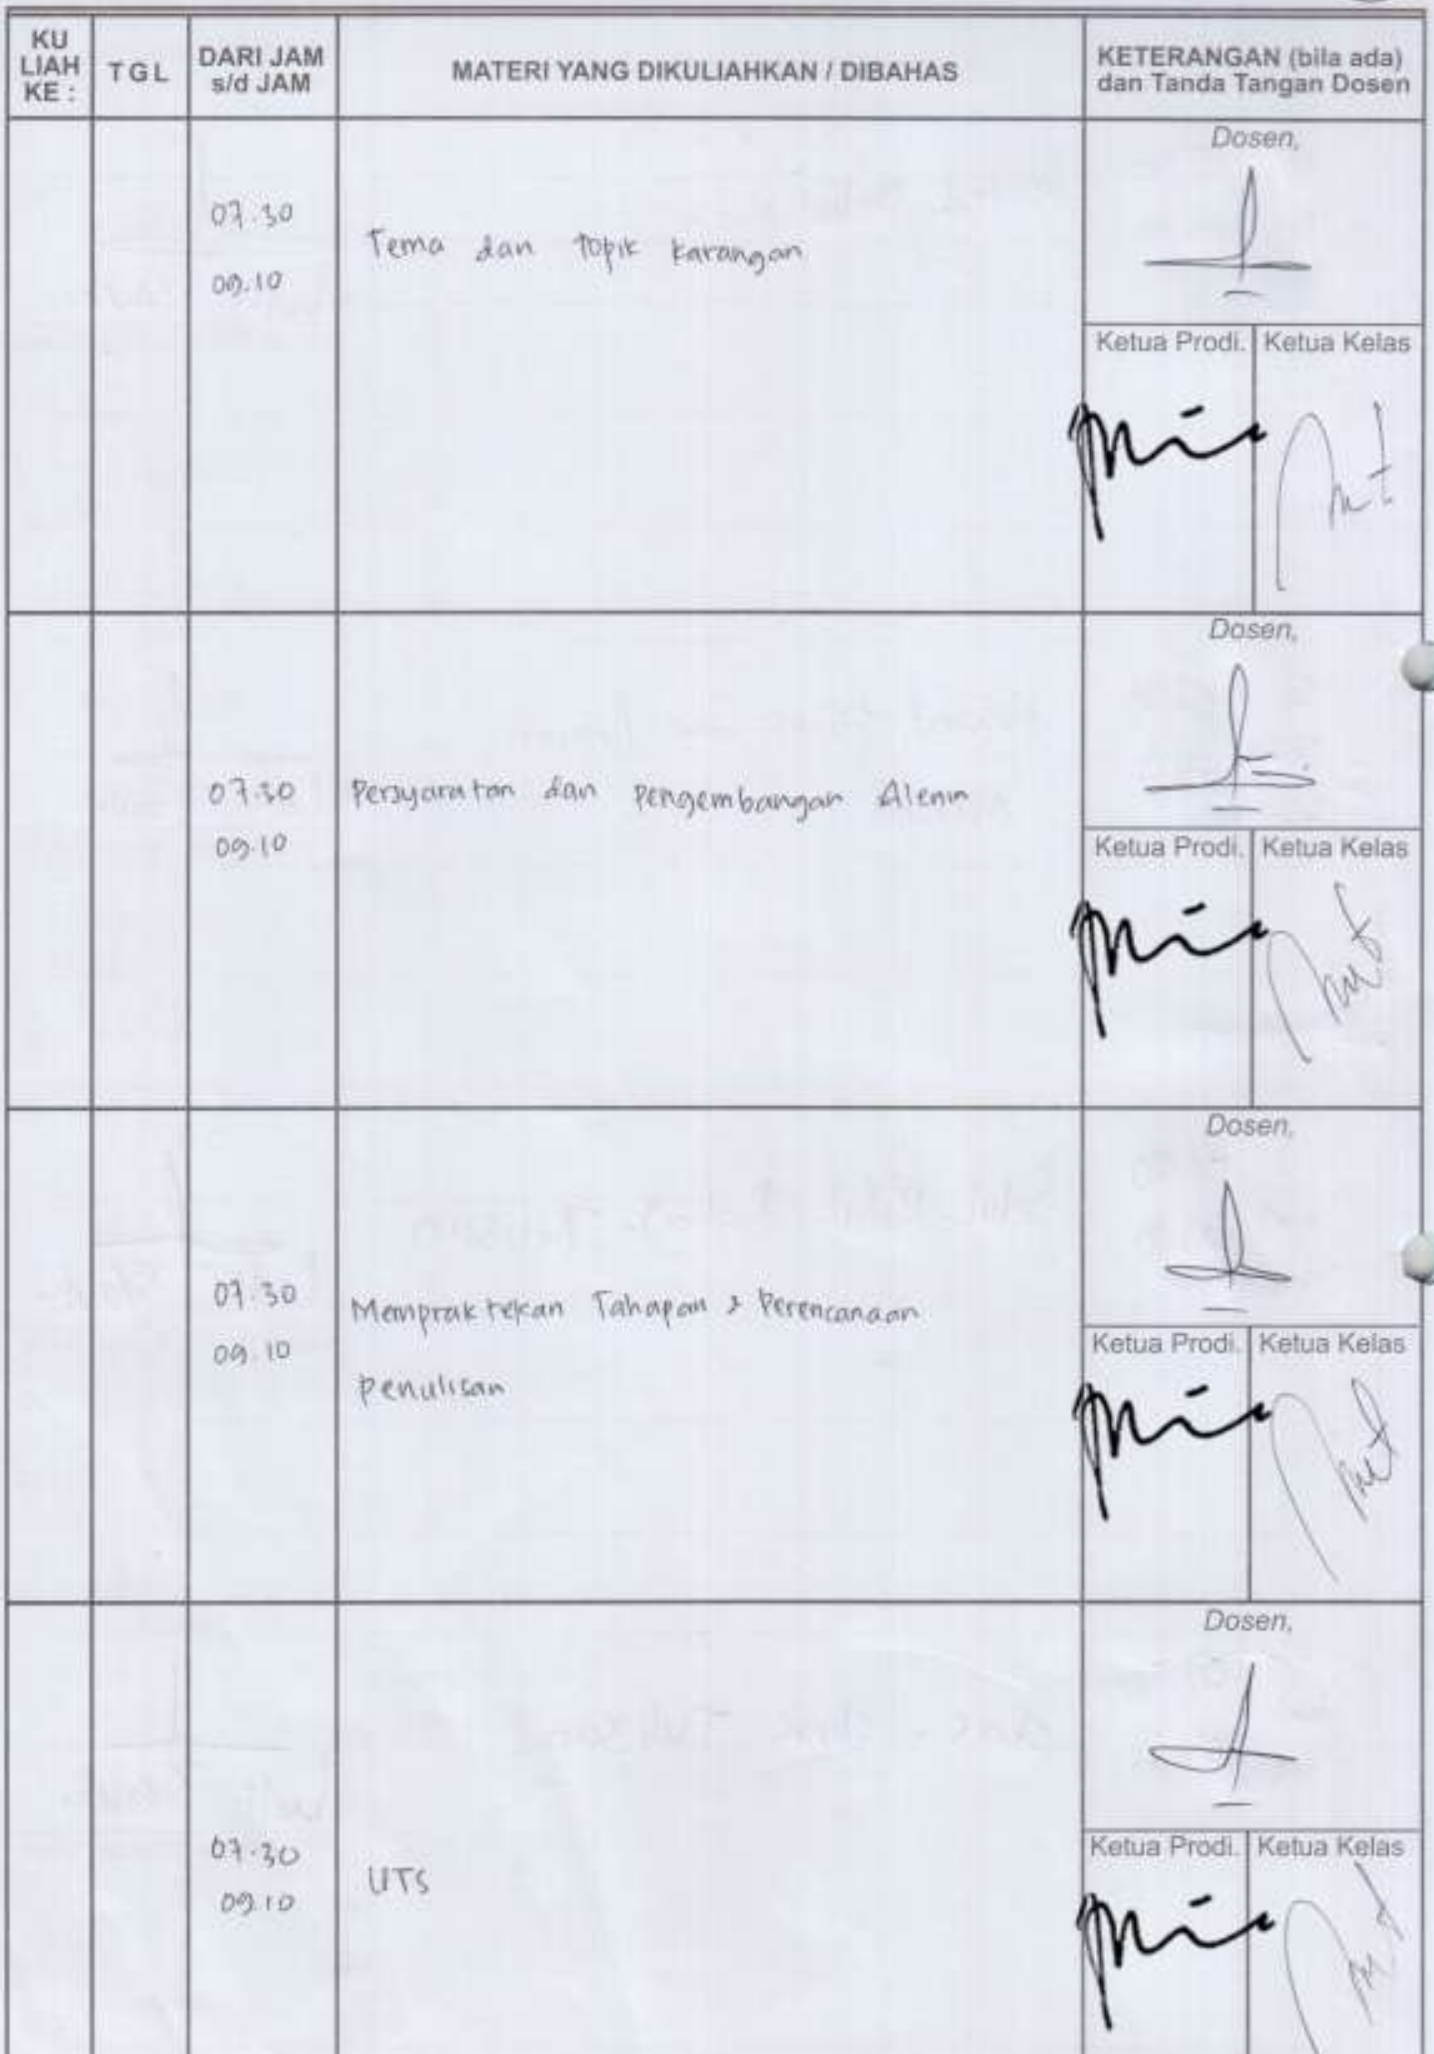 KU LIAH KE :
TGL
DARI JAM s/d JAM
MATERI YANG DIKULIAHKAN / DIBAHAS
KETERANGAN (bila ada) dan Tanda Tangan Dosen
07.30
09.10
Tema dan Topik Karangan
Dosen,
Ketua Prodi.
Ketua Kelas
07.30
09.10
Persyaratan dan Pengembangan Alenia
Dosen,
Ketua Prodi.
Ketua Kelas
07.30
09.10
Mempraktekan Tahapan & Perencanaan
Penulisan
Dosen,
Ketua Prodi.
Ketua Kelas
07.30
09.10
UTS
Dosen,
Ketua Prodi.
Ketua Kelas